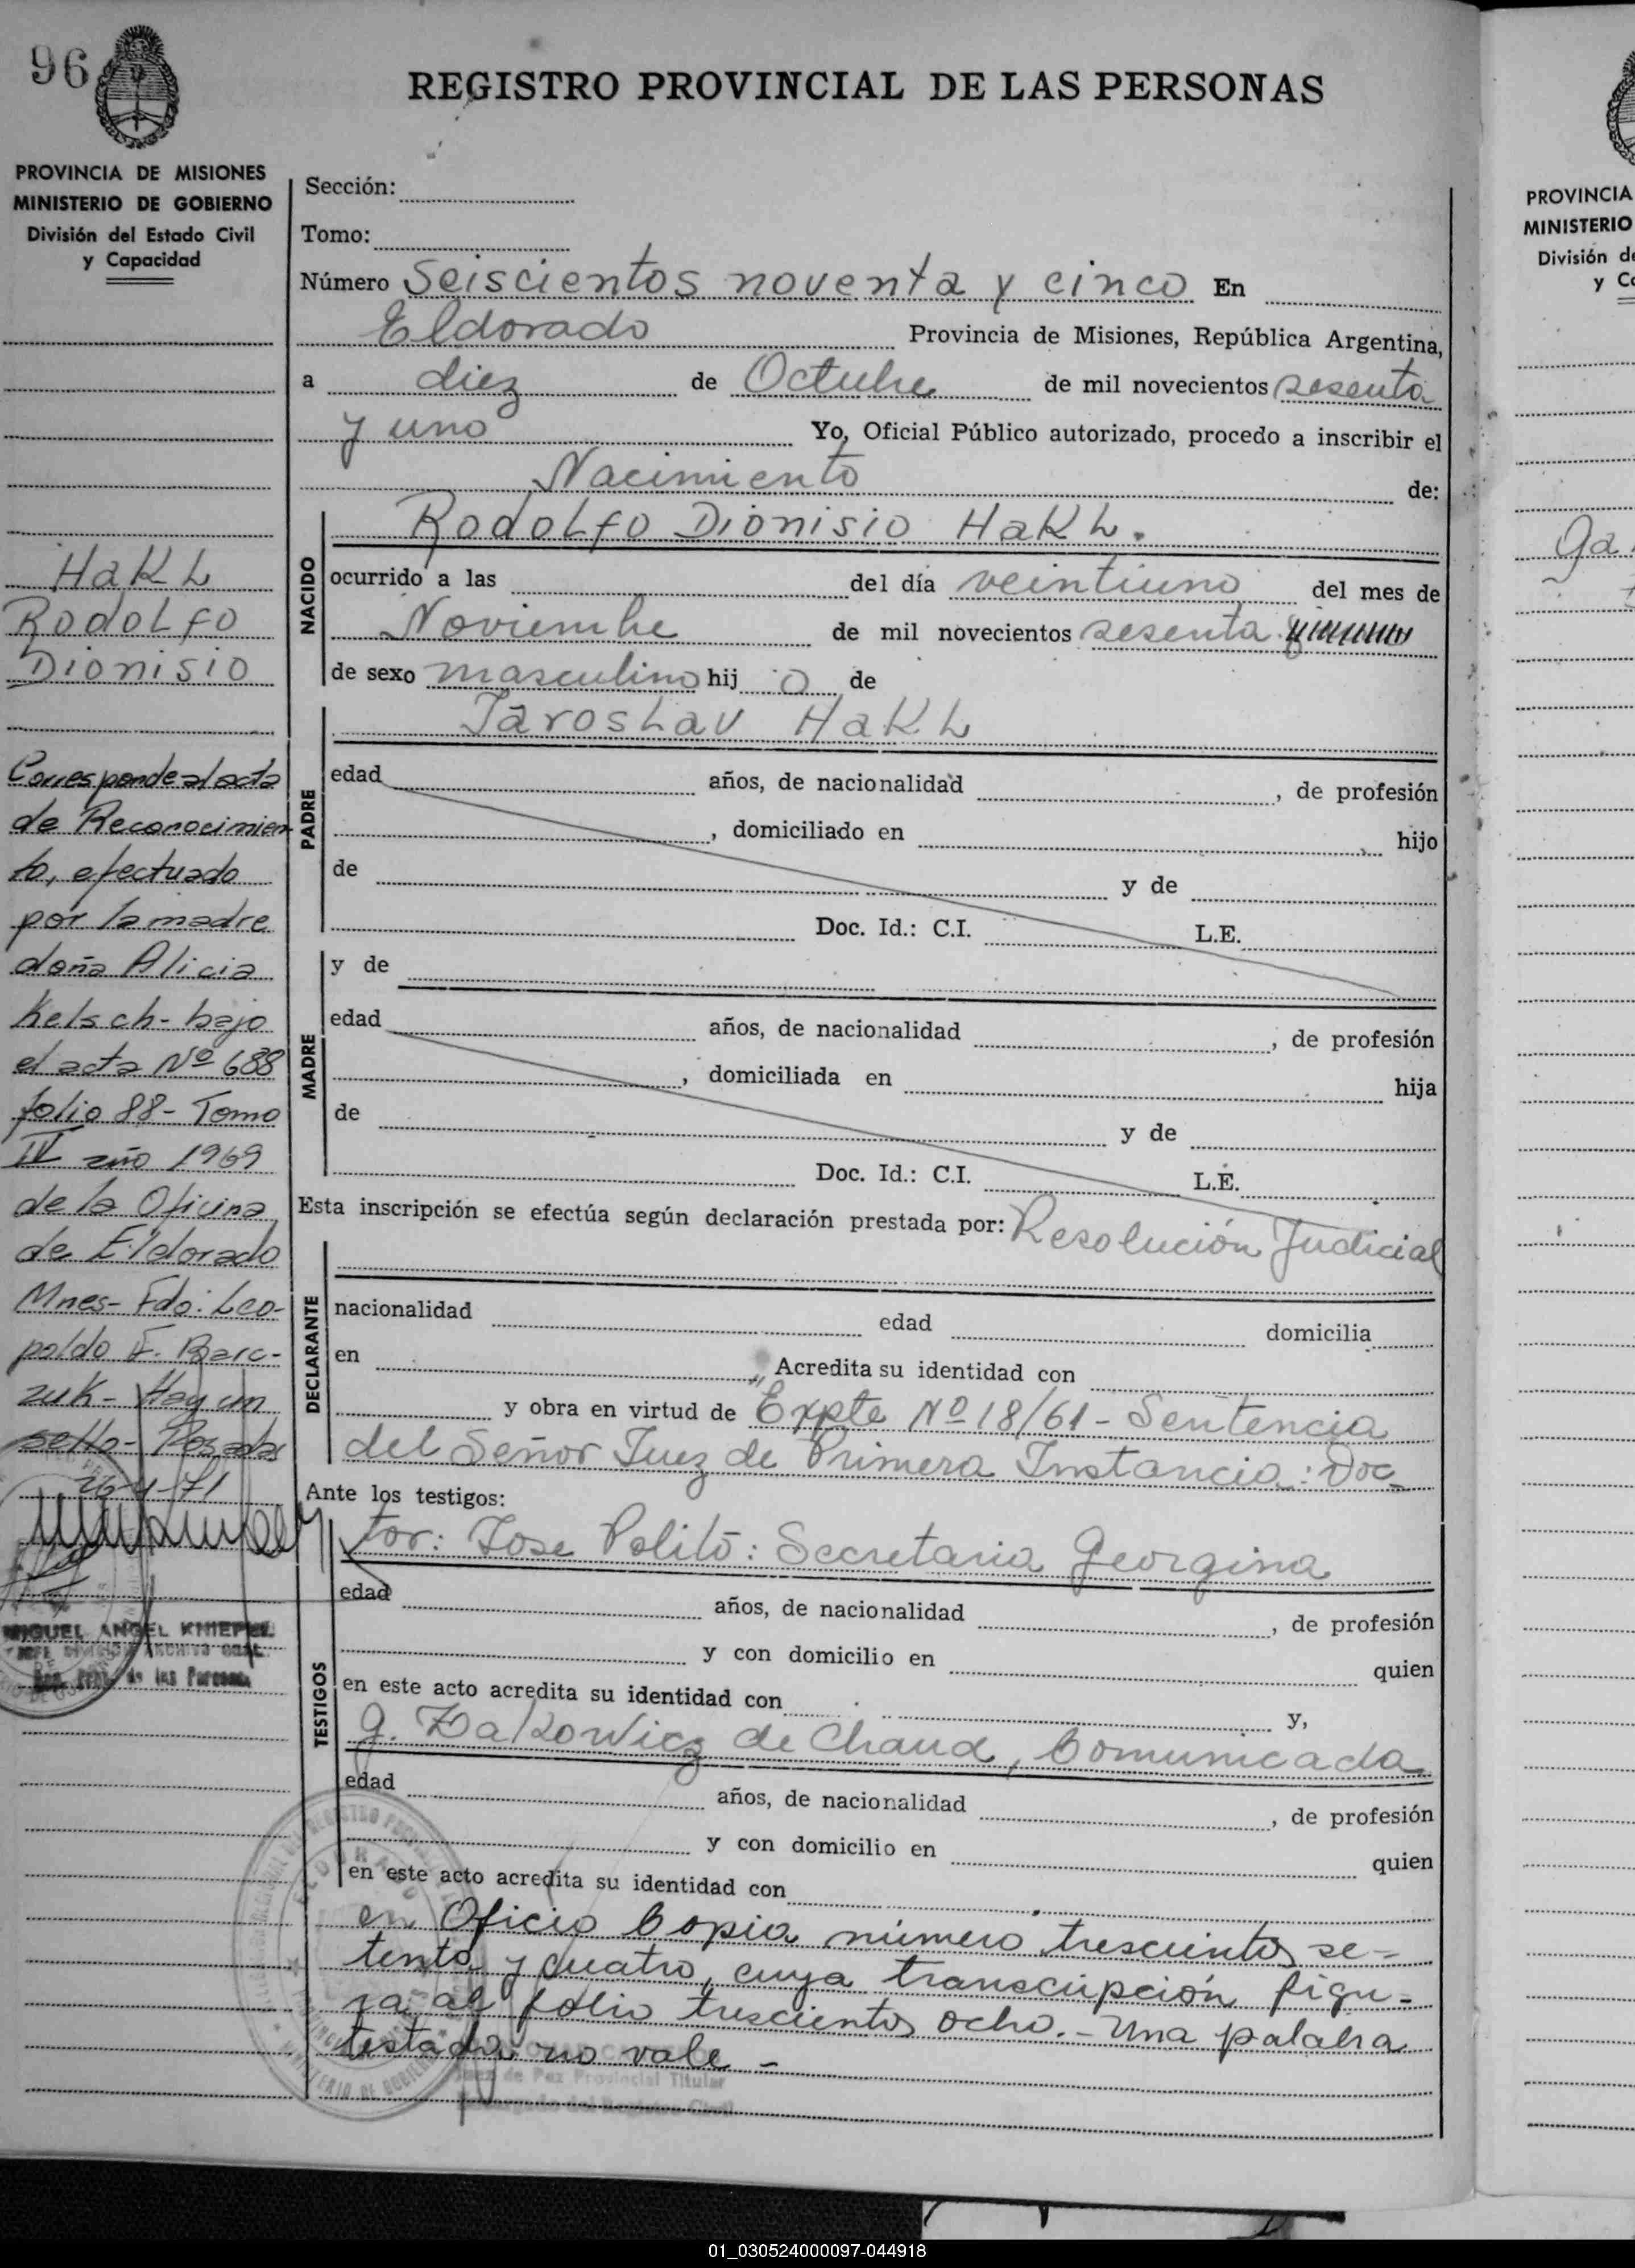 96
REGISTRO PROVINCIAL DE LAS PERSONAS
PROVINCIA DE MISIONES
MINISTERIO DE GOBIERNO
División del Estado Civil
y Capacidad
Sección:
Tomo:
Número Seiscientos noventa y cinco En
Eldorado Provincia de Misiones, República Argentina,
a diez de Octubre de mil novecientos sesenta
y uno Yo, Oficial Público autorizado, procedo a inscribir el
Nacimiento de:
NACIDO
Rodolfo Dionisio Hakl.
ocurrido a las del día veintiuno del mes de
Noviembre de mil novecientos sesenta
de sexo masculino hij o de
PADRE
Jaroslav Hakl
edad años, de nacionalidad , de profesión
, domiciliado en hijo
de y de
Doc. Id.: C.I. L.E.
MADRE
y de
edad años, de nacionalidad , de profesión
, domiciliada en hija
de y de
Doc. Id.: C.I. L.E.
Esta inscripción se efectúa según declaración prestada por: Resolución Judicial
DECLARANTE
nacionalidad edad domicilia
en Acredita su identidad con
y obra en virtud de Expte Nº 18/61 - Sentencia
del Señor Juez de Primera Instancia: Doc-
Ante los testigos:
TESTIGOS
tor: Jose Politō: Secretaria Georgina
edad años, de nacionalidad , de profesión
y con domicilio en quien
en este acto acredita su identidad con y,
G. Zakowicz de Chaud, Comunicada
edad años, de nacionalidad , de profesión
y con domicilio en quien
en este acto acredita su identidad con
en Oficio Copia número trescientos se-
tenta y cuatro, cuya transcripción figu-
ra al folio trescientos ocho.- Una palabra
testada no vale -
Juez de Paz Provincial Titular
Encargado del Registro Civil
Hakl
Rodolfo
Dionisio
Corresponde al acta
de Reconocimien
to, efectuado
por la madre
doña Alicia
Kelsch - bajo
el acta Nº 688
folio 88 - Tomo
IV año 1969
de la Oficina
de Eldorado
Mnes - Fdo: Leo-
poldo F. Barc-
zuk - Hay un
sello - Posadas
26-4-71
MIGUEL ANGEL KNIEPEL
JEFE DIVISION ARCHIVO GRAL.
Reg. Prov. de las Personas
PROVINCIA
MINISTERIO
División de
y Ca
Ga
01_030524000097-044918